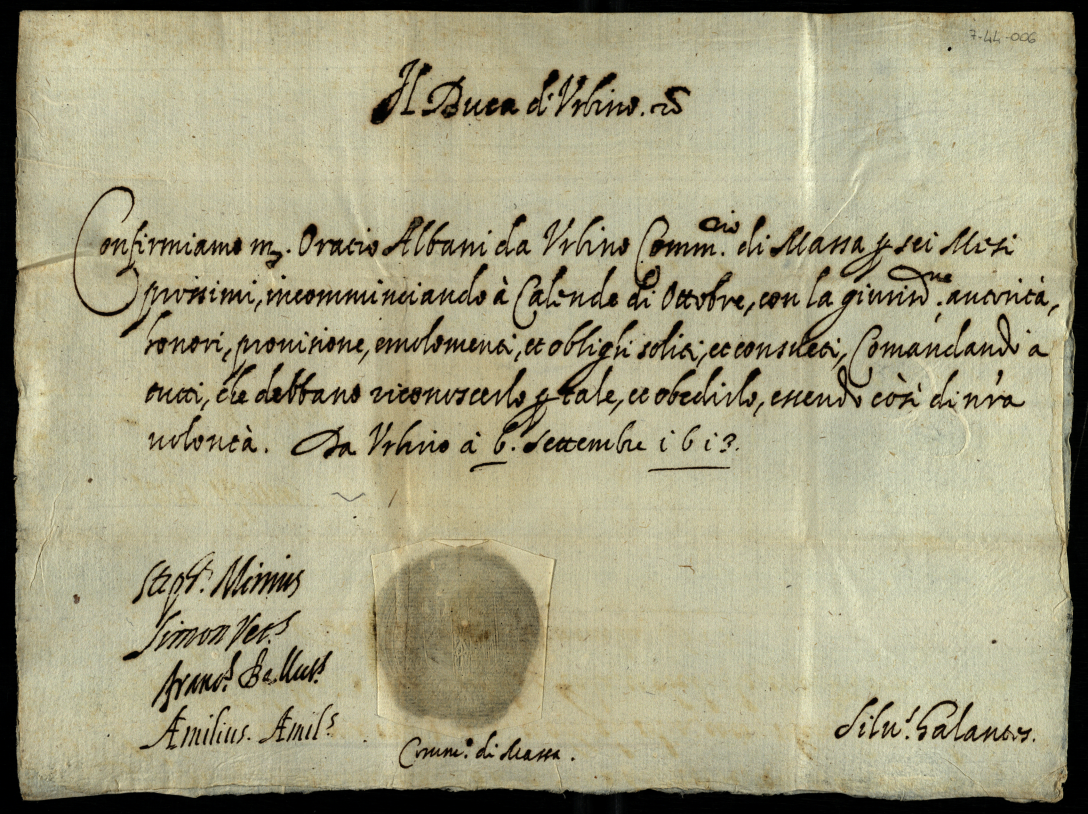 7-44-006
Il Duca d'Urbino. &c
Confirmiamo m. Oratio Albani da Urbino Comm.rio di Massa p sei Mesi
prossimi, incomminciando à Calende di Ottobre, con la giurisd.ne autorità,
honori, provisione, emolomenti, et oblighi soliti, et consueti, Comandando a
tutti, che debbano riconoscerlo p tale, et obedirlo, essendo così di n'ra
volontà. Da Urbino à 6. Settembre 1613.
Step.s Minius
Simon
Franc.s
Æmilius. Æmil.s
Silv.s Galantes.
Comm.o di Massa.